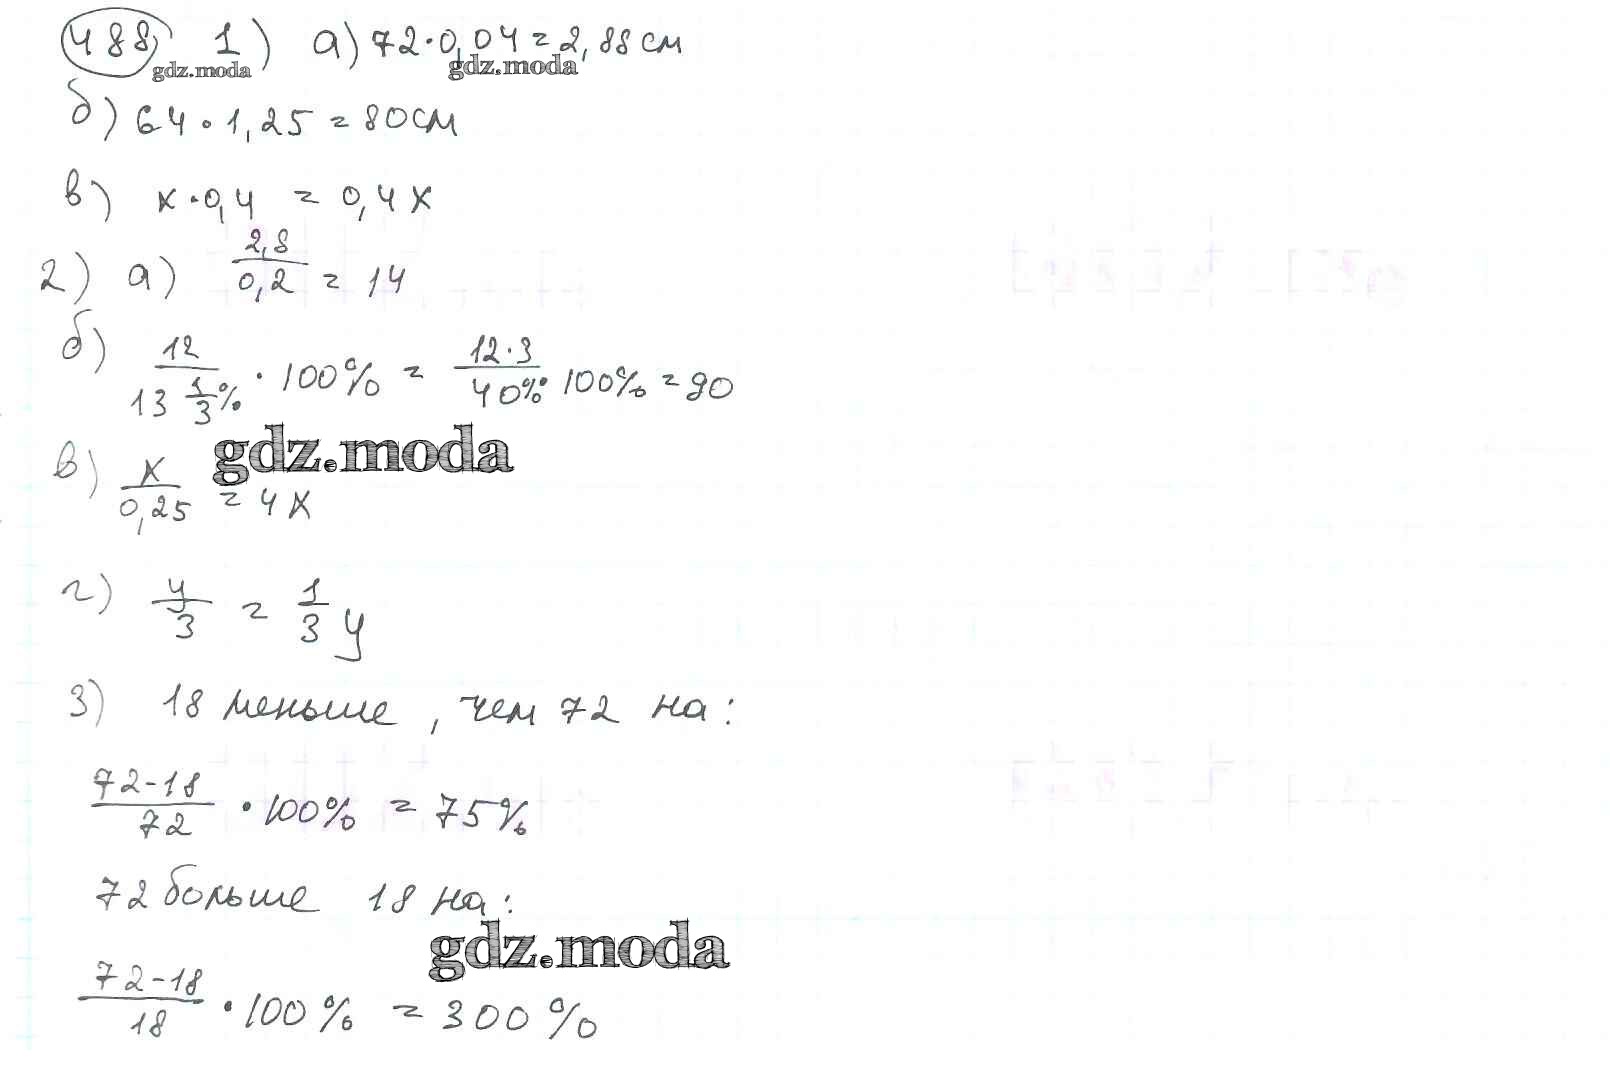 488. 1) а) 72·0,04=2,88 см
gdz.moda gdz.moda
б) 64·1,25=80 см
в) х·0,4 = 0,4х
2) а) 2,8/0,2 = 14
б) 12/13 1/3% · 100% = 12·3/40% · 100% = 90
gdz.moda
в) х/0,25 = 4х
г) у/3 = 1/3 у
3) 18 меньше, чем 72 на:
72-18/72 · 100% = 75%
72 больше 18 на:
gdz.moda
72-18/18 · 100% = 300%